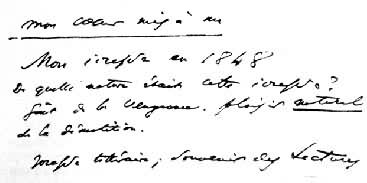 mon cœur mis à nu
Mon ivresse en 1848
De quelle nature était cette ivresse?
Goût de la vengeance. plaisir naturel
de la démolition.
ivresse littéraire; souvenir des lectures